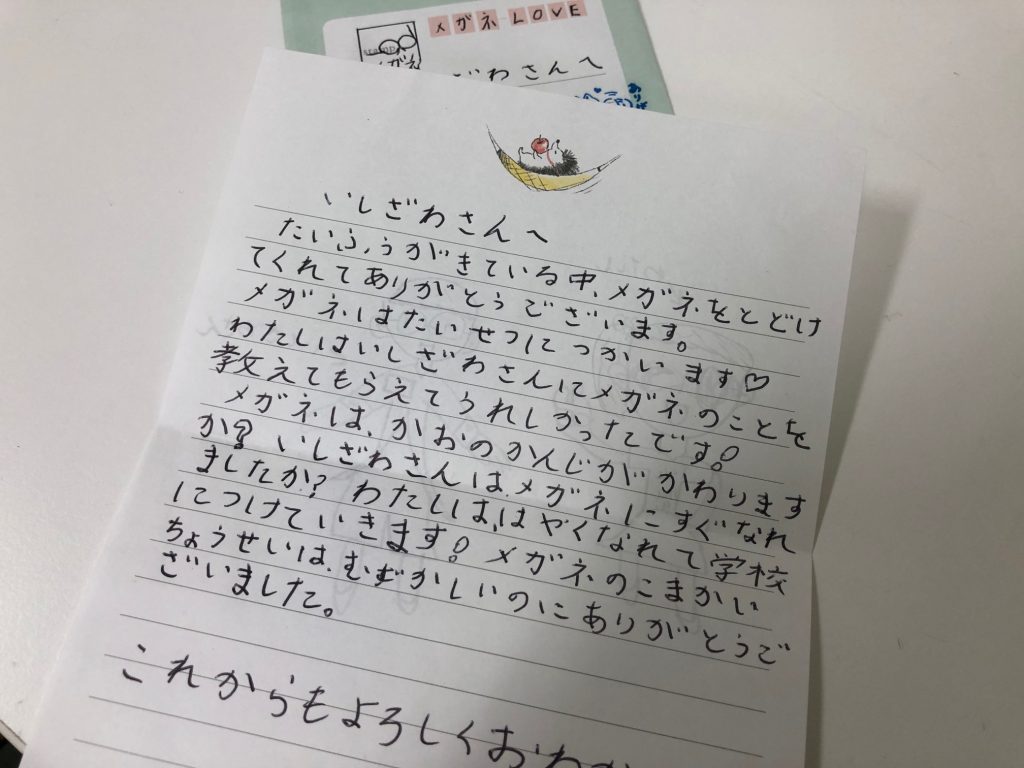 メガネ LOVE
stamp
メガネ
ざわさんへ
いしざわさんへ
たいふうがきている中、メガネをとどけ
てくれてありがとうございます。
メガネはたいせつにつかいます♡
わたしはいしざわさんにメガネのことを
教えてもらえてうれしかったです!
メガネは、かおのかんじがかわります
か? いしざわさんは、メガネにすぐなれ
ましたか? わたしは、はやくなれて学校
につけていきます! メガネのこまかい
ちょうせいは、むずかしいのにありがとうご
ざいました。
これからもよろしくおね